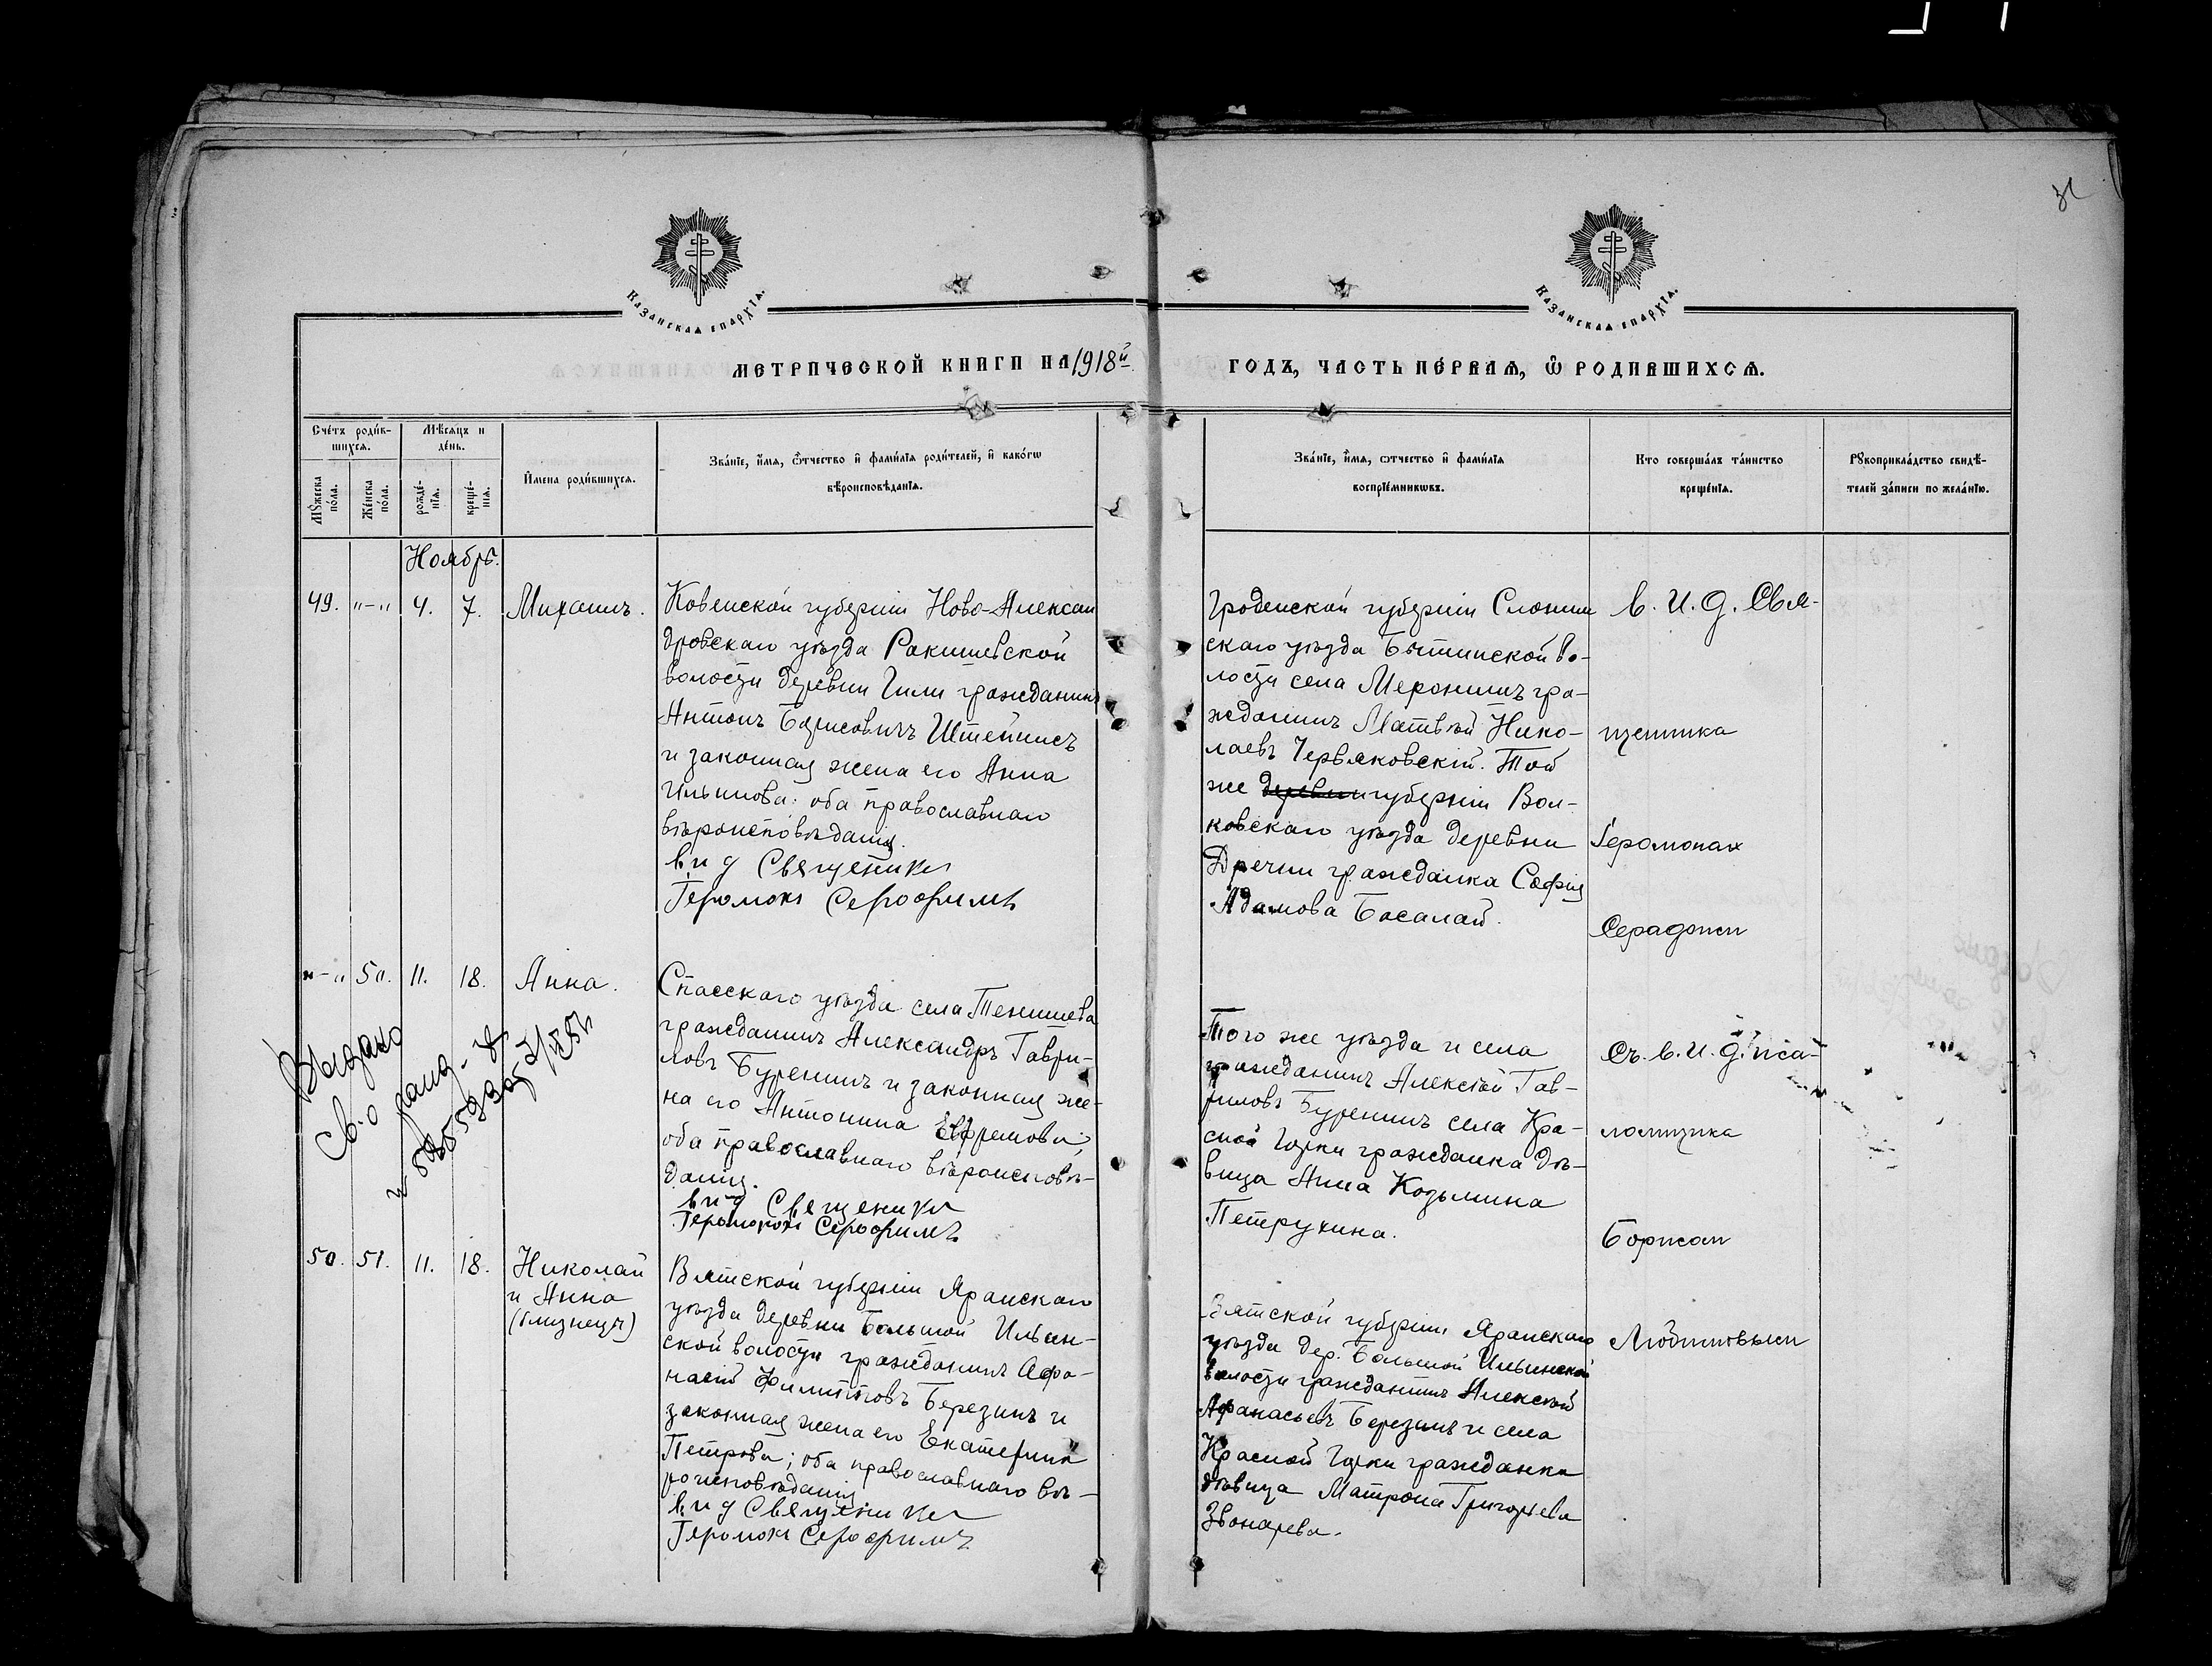 Казанская епархїѧ.
Казанская епархїѧ.
МЕТРИЧЕСКОЙ КНИГИ НА 1918й
ГОДЪ, ЧАСТЬ ПЕ́РВАѦ, Ѡ҆ РОДИВШИХСѦ.
Сче́тъ роди́в-
шихсѧ.
Мꙋ́жеска
по́ла.
Же́нска
по́ла.
Мѣ́сѧцъ и
де́нь.
рожде́-
нїѧ.
креще́-
нїѧ.
И҆мена роди́вшихсѧ.
Зва́нїе, и҆́мѧ, ѻ҆́тчество и҆ фами́лїѧ роди́телей, и҆ како́гѡ
вѣроисповѣ́данїѧ.
Зва́нїе, и҆́мѧ, ѻ҆́тчество и҆ фами́лїѧ
воспрїе́мникѡвъ.
Кто соверша́лъ та́инство
креще́нїѧ.
Рꙋкоприкла́дство свидѣ́-
телей за́писи по жела́нїю.
Ноябрь.
49. "-" 4. 7. Михаилъ.
Ковенской губерніи Ново-Алексан
дровскаго уѣзда Ракишевской
волости деревни Гили гражданинъ
Антонъ Борисовичъ Штейнисъ
и законная жена его Анна
Ильинова: оба православнаго
вѣроисповѣданія.
в и д Священника
Іеромонъ Серафимъ
Гроденской губерніи Слоним
скаго уѣзда Бытинской во-
лости села Меронимъ гра-
жданинъ Матвѣй Нико-
лаевъ Червяковскій. Той
же деревни губерніи Вол-
ковскаго уѣзда деревни
Дречни гражданка Софія
Адамова Босалай.
в. И. д. Свя-
щенника
Іеромонах
Серафим
"-" 50. 11. 18. Анна.
Спасскаго уѣзда села Тенишева
гражданинъ Александръ Гаври-
ловъ Буренинъ и законная же-
на его Антонина Ефремова;
оба православнаго вѣроисповѣ-
данія.
в и д Священника
Іеромонах Серафимъ
Выдано
Св. о
Того же уѣзда и села
гражданинъ Алексѣй Гав-
риловъ Буренинъ села Кра-
сной Горки гражданка дѣ-
вица Анна Козьмина
Петрухина.
Съ в. И. д. пса-
ломщика
50. 51. 11. 18. Николай
и Анна
(близнецы)
Вятской губерніи Яранскаго
уѣзда деревни Большой Ильин-
ской волости гражданинъ Афа-
насій Филипповъ Березинъ и
законная жена его Екатерина
Петрова; оба православнаго вѣ-
роисповѣданія
в и д Священника
Іеромонъ Серафимъ
Вятской губерніи Яранскаго
уѣзда дер. Большой Ильинской
волости гражданинъ Алексѣй
Афанасьевъ Березинъ и села
Красной Горки гражданка
дѣвица Матрона Григорьева
Звонарева.